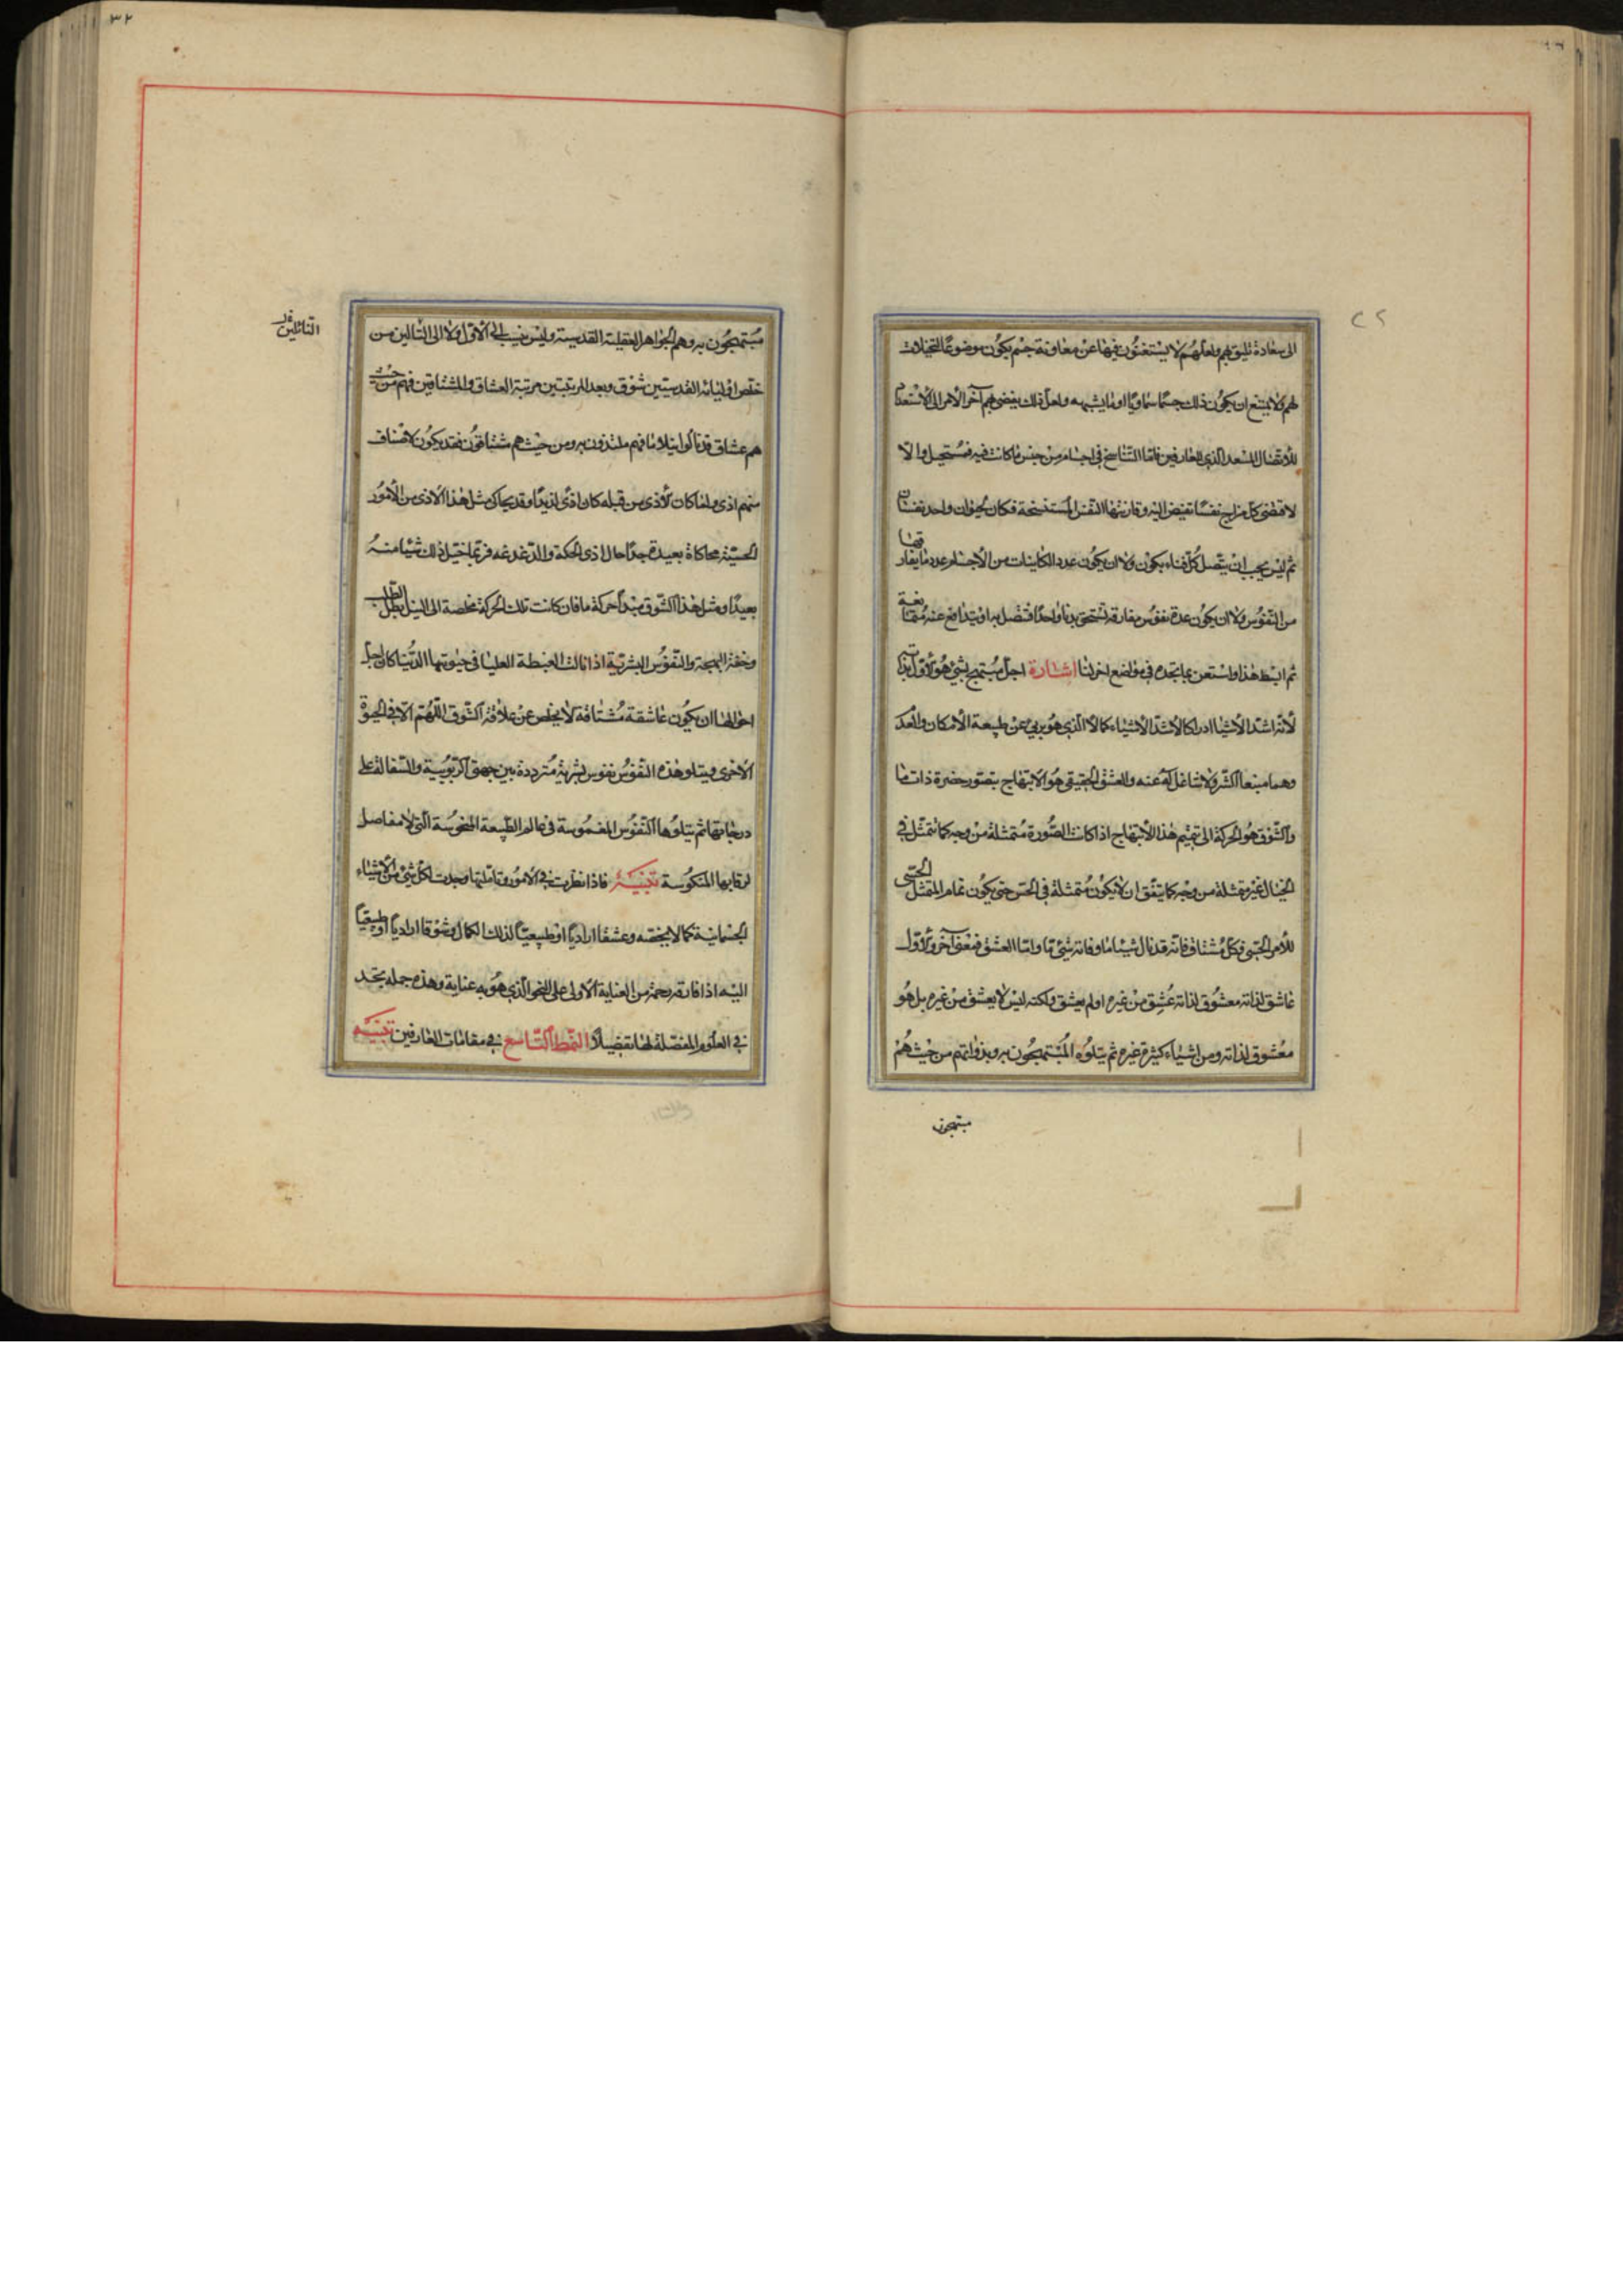 الى سعادة تليق بهم ولعلهم لا يستغنون فيها عن معاونة جسم يكون موضوعا لتخيلات
لهم ولا يمتنع ان يكون ذلك جسما سماويا او ما يشبهه ولعل ذلك يفضى بهم آخر الأمر الى الاستعداد
للاتصال المسعد الذي للعارفين فاما التناسخ في اجسام من جنس ما كانت فيه فمستحيل والا
لاقتضى كل مزاج نفسا تفيض اليه وقارنتها النفس المستنسخة فكان لحيوان واحد نفسان
ثم ليس يجب ان يتصل كل فناء بكون ولا ان يكون عدد الكاينات من الاجسام عدد ما يفارقها
من النفوس ولا ان يكون عدة نفوس مفارقة تستحق بدنا واحدا فتتصل به او يتدافع عنه متمانعة
ثم ابسط هذا واستعن بما تجده في مواضع اخر لنا اشارة اجل مبتهج بشئ هو الاول بذاته
لأنه اشد الأشياء ادراكا لاشد الاشياء كمالا الذي هو برئ عن طبيعة الأمكان والعدم
وهما منبعا الشر ولا شاغل له عنه والعشق الحقيقي هو الابتهاج بتصور حضرة ذات ما
والشوق هو الحركة الى تتميم هذا الأبتهاج اذا كانت الصورة متمثلة من وجه كما تتمثل في
الخيال غير متمثلة من وجه كما يتفق ان لا يكون متمثلة في الحس حتى يكون تمام التمثل الحسي
للأمر الحسي فكل مشتاق فانه قد نال شيئا ما وفاته شئ ما واما العشق فمعنى آخر والأول
عاشق لذاته معشوق لذاته عشق من غيره او لم يعشق ولكنه ليس لا يعشق من غيره بل هو
معشوق لذاته ومن اشياء كثيرة غيره ثم يتلوه المبتهجون به وبذواتهم من حيث هم
مبتهجون
مبتهجون به وهم الجواهر العقلية القدسية وليس ينسب الى الاول ولا الى التالين من
خلص اوليائه القدسيين شوق وبعد المرتبتين مرتبة العشاق والمشتاقين فهم من حيث
هم عشاق قد نالوا نيلا ما فهم ملتذون به ومن حيث هم مشتاقون فقد يكون لاصناف
منهم اذى ولما كان الاذى من قبله كان اذى لذيذا وقد يحاكى مثل هذا الاذى من الأمور
الحسية محاكاة بعيدة جدا حال اذى الحكة والدغدغه فربما خيل ذلك شيئا منه
بعيدا ومثل هذا الشوق مبدأ حركة ما فان كانت تلك الحركة مخلصة الى النيل بطل الطلب
وحقت البهجة والنفوس البشرية اذا نالت الغبطة العليا في حيوتها الدنيا كان اجل
احوالها ان يكون عاشقة مشتاقة لا يخلص عن علاقة الشوق اللهم الا في الحيوة
الاخرى ويتلو هذه النفوس نفوس بشرية مترددة بين جهتى الربوبية والسفالة على
درجاتها ثم يتلوها النفوس المغموسة في عالم الطبيعة المنحوسة التي لا مفاصل
لرقابها المنكوسة تنبيه فاذا نظرت في الامور وتأملتها وجدت لكل شئ من الأشياء
الجسمانية كمالا يخصه وعشقا اراديا او طبيعيا لذلك الكمال وشوقا اراديا او طبيعيا
اليه اذا فارقه رحمة من العناية الأولى على النحو الذي هو به عناية وهذه جملة تجد
في العلوم المفصلة لها تفصيلا النمط التاسع في مقامات العارفين تنبيه